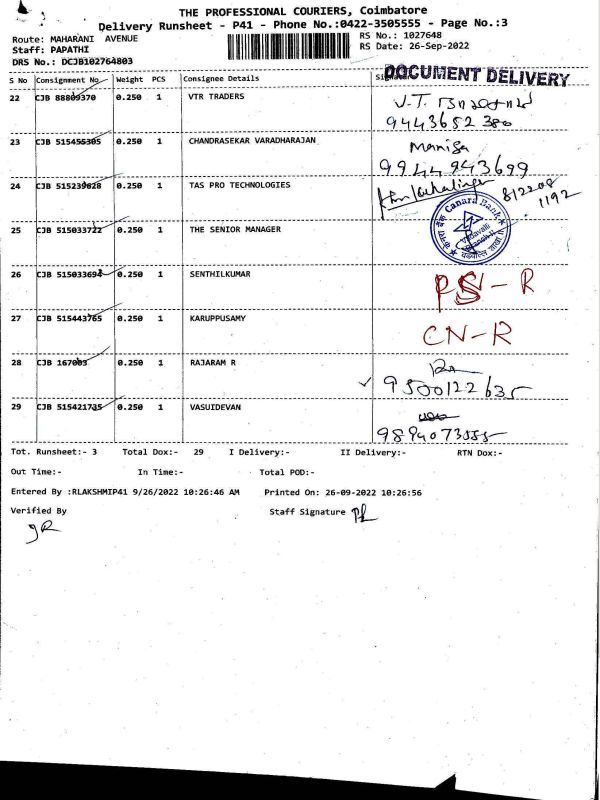 THE PROFESSIONAL COURIERS, Coimbatore
Delivery Runsheet - P41 - Phone No.:0422-3505555 - Page No.:3
Route: MAHARANI AVENUE
RS No.: 1027648
Staff: PAPATHI
RS Date: 26-Sep-2022
DRS No.: DCJB102764803
DOCUMENT DELIVERY
S No Consignment No Weight PCS Consignee Details
22 CJB 88809370 0.250 1 VTR TRADERS V.T.
9443652380
23 CJB 515455305 0.250 1 CHANDRASEKAR VARADHARAJAN
9944943699
24 CJB 515239828 0.250 1 TAS PRO TECHNOLOGIES
812208
1192
25 CJB 515033722 0.250 1 THE SENIOR MANAGER
Canara Bank
केनरा बैंक
26 CJB 515033694 0.250 1 SENTHILKUMAR PS-R
27 CJB 515443765 0.250 1 KARUPPUSAMY CN-R
28 CJB 167003 0.250 1 RAJARAM R
9500122635
29 CJB 515421735 0.250 1 VASUIDEVAN
9894073555
Tot. Runsheet:- 3 Total Dox:- 29 I Delivery:- II Delivery:- RTN Dox:-
Out Time:- In Time:- Total POD:-
Entered By :RLAKSHMIP41 9/26/2022 10:26:46 AM Printed On: 26-09-2022 10:26:56
Verified By Staff Signature